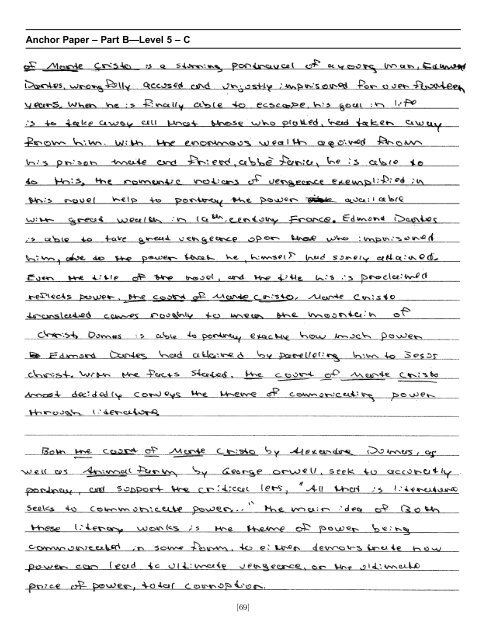 Anchor Paper – Part B—Level 5 – C
of Monte Cristo is a stunning portrayal of a young man, Edmond
Dantes, wrongfully accused and unjustly imprisoned for over fourteen
years. When he is finally able to ecscape, his goal in life
is to take away all that those who plotted, had taken away
from him. With the enormous wealth aquired from
his prison mate and friend, abbé faria, he is able to
to this, the romantic notions of vengeance exemplified in
this novel help to portray the power available
with great wealth in 19th century France. Edmond Dantes
is able to take great vengeance upon those who imprisoned
him, due to the power that he himself had surely attained.
Even the title of the novel, and the title his is proclaimed
reflects power. The count of Monte Cristo. Monte Cristo
translated comes roughly to mean the mountain of
Christ, Dumas is able to portray exactly how much power
Edmond Dantes had attained by parelleling him to Jesus
christ. With the facts stated, the count of Monte Cristo
most decidally conveys the theme of communicating power
through literature
Both the count of Monte Cristo by Alexandre Dumas, as
well as Animal Farm by George orwell, seek to accuratly
portray, and support the critical lens, "All that is literature
seeks to communicate power..." The main idea of Both
these literary works is the theme of power being
communicated in some form, to either demonstrate how
power can lead to ultimate vengeance, or the ultimate
price of power, total corruption.
[69]